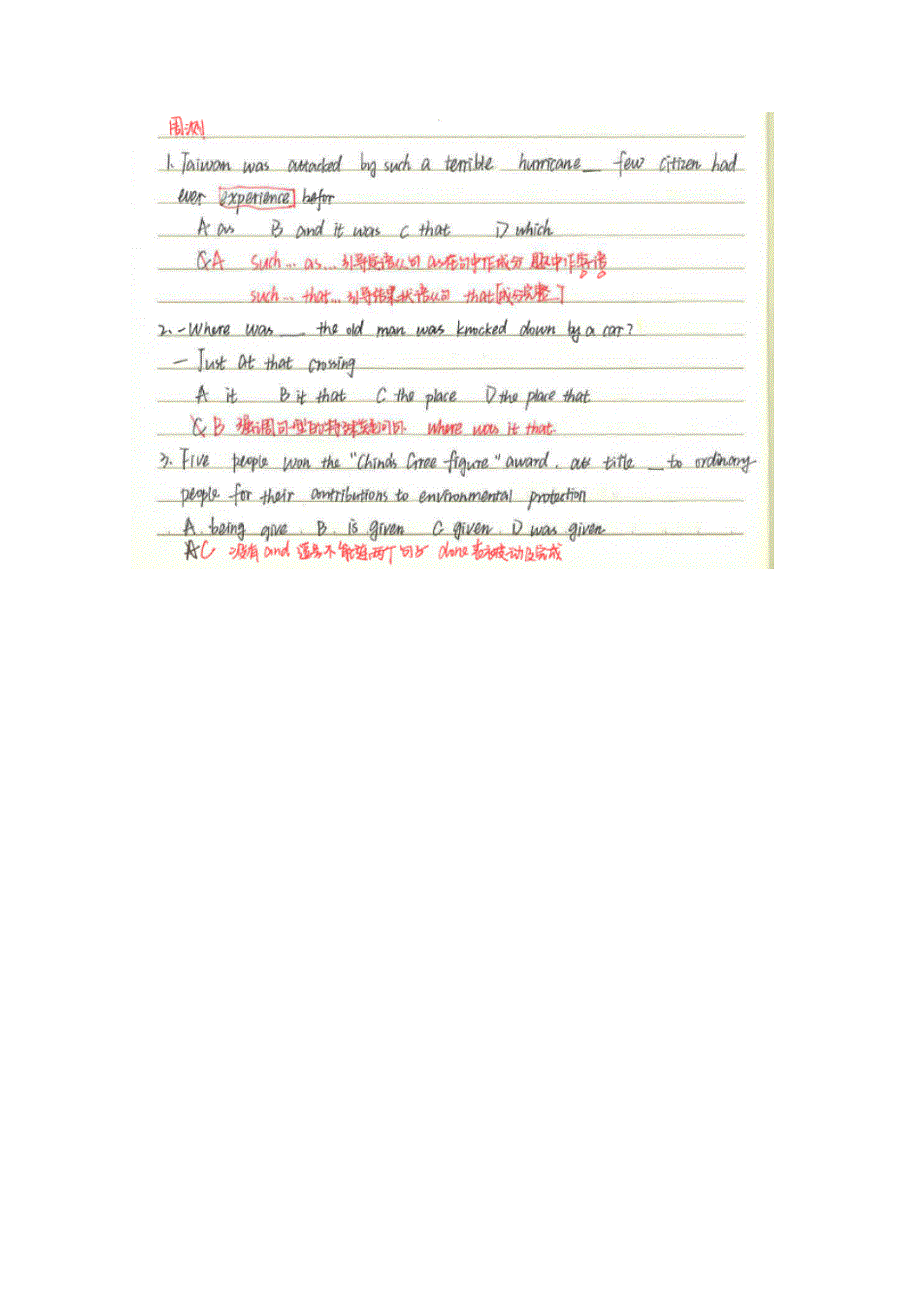 周测
1. Taiwan was attacked by such a terrible hurricane __ few citizen had
ever experience befor
A as B and it was C that D which
C A such... as... 引导定语从句 as在句中作成分 此题中作宾语
such... that... 引导结果状语从句 that [成分完整]
2. - Where was __ the old man was knocked down by a car?
- Just at that crossing
A it B it that C the place D the place that
C B 强调句型的特殊疑问句. where was it that.
3. Five people won the "China's Gree figure" award, a title __ to ordinary
people for their contributions to environmental protection
A. being give B. is given C given D was given
A C 没有and 逗号不能连两个句子 done表被动及完成